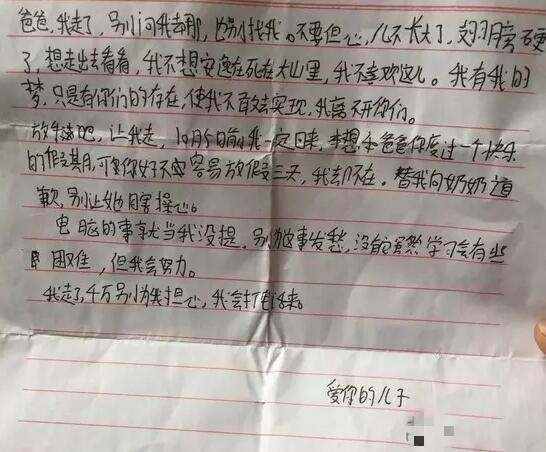 爸爸,我走了,别问我去那,也别找我。不要但心,儿不长大了,翅膀硬
了,想走出去看看,我不想安逸在死在大山里,我不喜欢这儿。我有我的
梦,只是有你们的存在,使我不敢去实现,我离不开你们。
放手吧,让我走,10月5日前我一定回来,本想和爸爸你度过一个快乐
的假其月,可是你好不容易放假三天,我却不在。替我向奶奶道
歉,别让她瞎操心。
电脑的事就当我没提,别为这事发愁,没有它虽然学习会有些
困难,但我会努力。
我走了,千万别为我担心,我会打电话来。
爱你的儿子